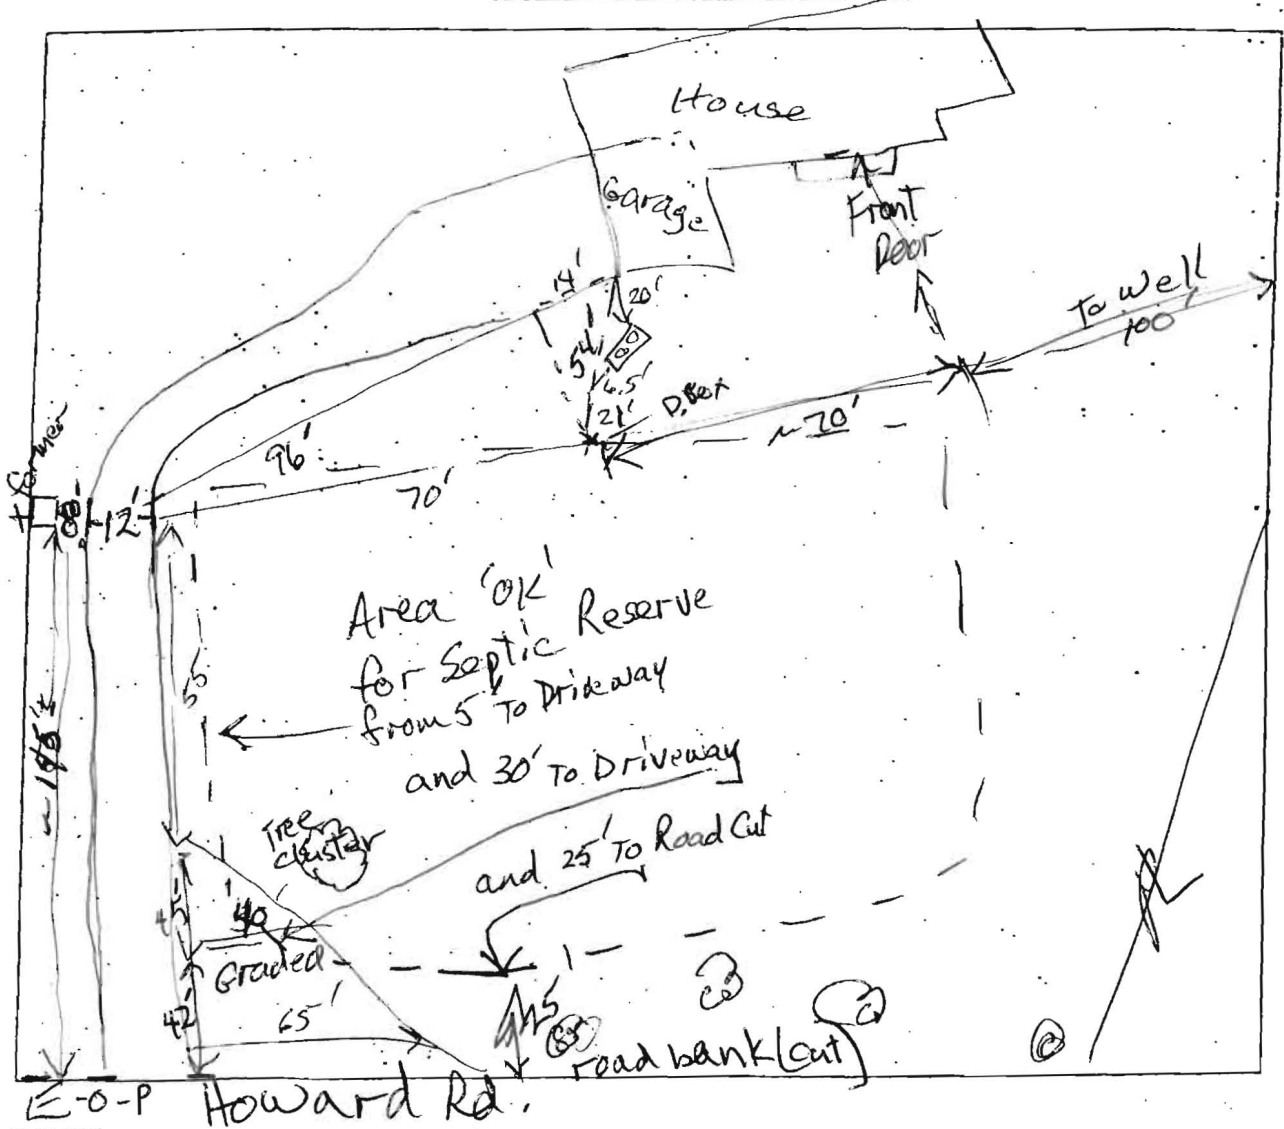 House
Garage
Front
Door
To Well
100'
14'
20'
54'
6.5'
21'
D.Box
~70'
96'
70'
former
12'
Area 'OK'
for Septic Reserve
from 5' To Driveway
and 30' To Driveway
and 25' To Road Cut
55'
Tree
cluster
40'
45'
Graded
42'
65'
road bank (cut)
E-O-P
Howard Rd.